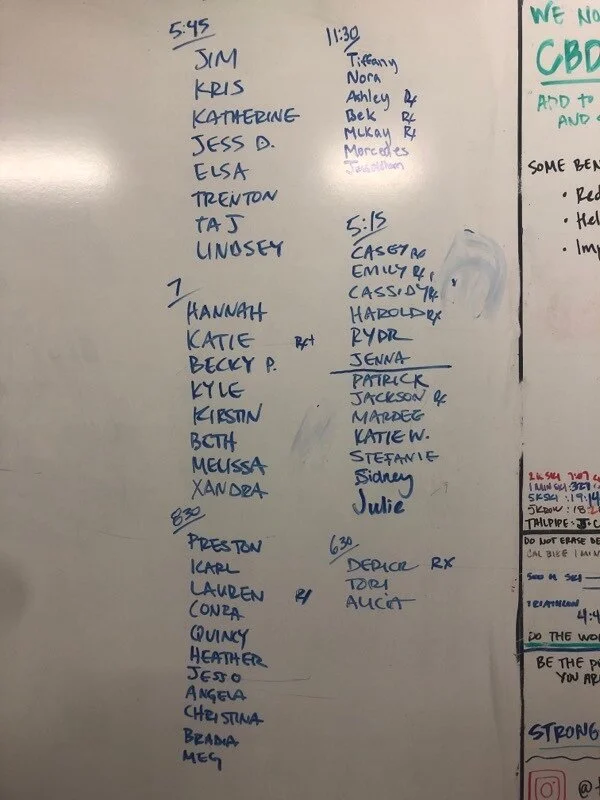 5:45
JIM
KRIS
KATHERINE
JESS D.
ELSA
TRENTON
TAJ
LINDSEY
7
HANNAH
KATIE Rx+
BECKY P.
KYLE
KIRSTIN
BETH
MELISSA
XANDRA
830
PRESTON
KARL
LAUREN Rx
CONRA
QUINCY
HEATHER
JESS O
ANGELA
CHRISTINA
MEG
11:30
Tiffany
Nora
Ashley Rx
Bek Rx
McKay Rx
Mercedes
5:15
CASEY Rx
EMILY Rx
CASSIDY Rx
HAROLD Rx
RYDR
JENNA
PATRICK
JACKSON Rx
MARDEE
KATIE W.
STEFANIE
Sidney
Julie
630
DERICK RX
TORI
ALICIA
WE NO
CBD
ADD TO
AND
SOME BEN
• Red
• Hel
• Imp
2K SKI 7:07
1 MIN SKI: 327
5K SKI: 19:14
5K ROW: 18:2
TAILPIPE: J.C
DO NOT ERASE BE
CAL BIKE 1 MIN
500 M SKI
TRIATHLON
4:4
DO THE WO
BE THE P
YOU AR
STRONG
@